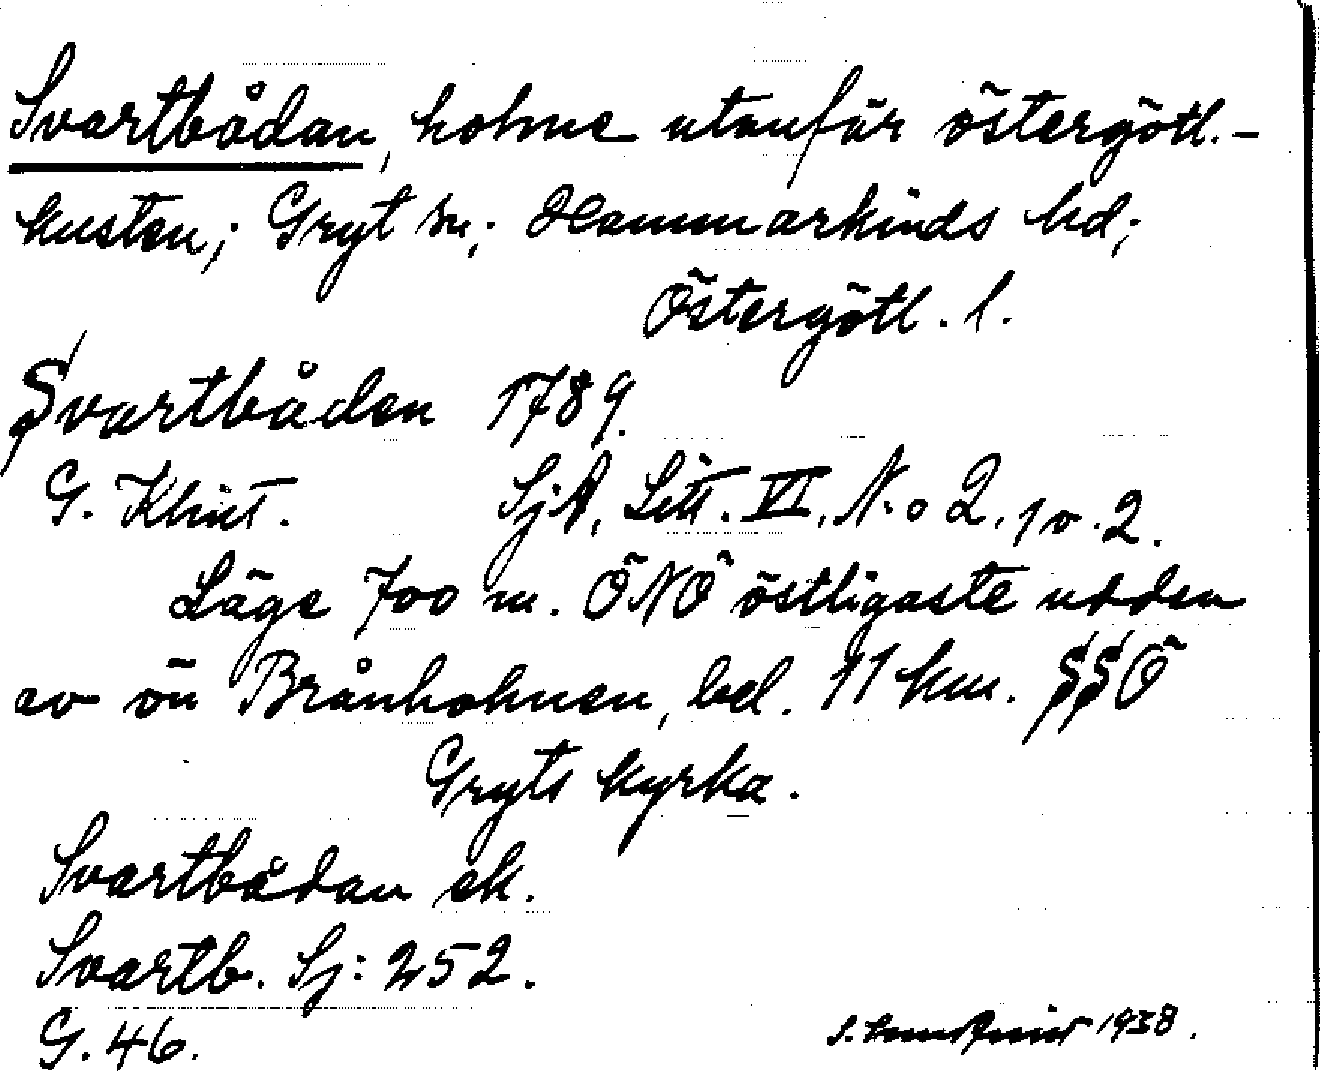 Svartbådan, holme utanför östergötl.-
kusten; Gryt sn; Hammarkinds hd;
Östergötl. l.
Svartbåden 1789.
G. Klint. SjA, Litt. VI, N.o 2, 1 o. 2.
Läge 700 m. ÖNÖ östligaste udden
av ön Brånholmen, bel. 11 km. SSÖ
Gryts kyrka.
Svartbådan ek.
Svartb. Sj: 252.
G. 46.
1938.